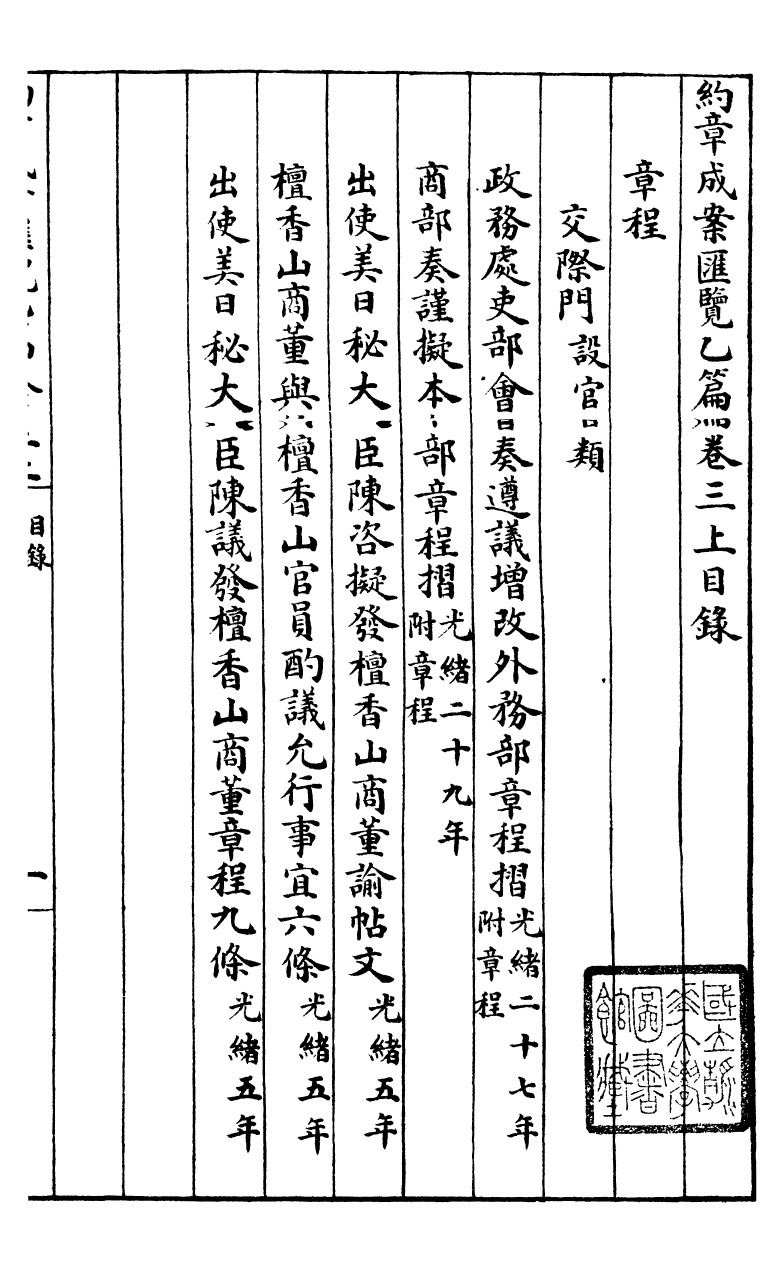 約章成案匯覽乙篇卷三上目錄
章程
交際門 設官類
政務處吏部會奏遵議增改外務部章程摺 光緒二十七年 附章程
商部奏謹擬本部章程摺 光緒二十九年 附章程
出使美日秘大臣陳咨擬發檀香山商董諭帖文 光緒五年
檀香山商董與檀香山官員酌議允行事宜六條 光緒五年
出使美日秘大臣陳議發檀香山商董章程九條 光緒五年
目錄
一